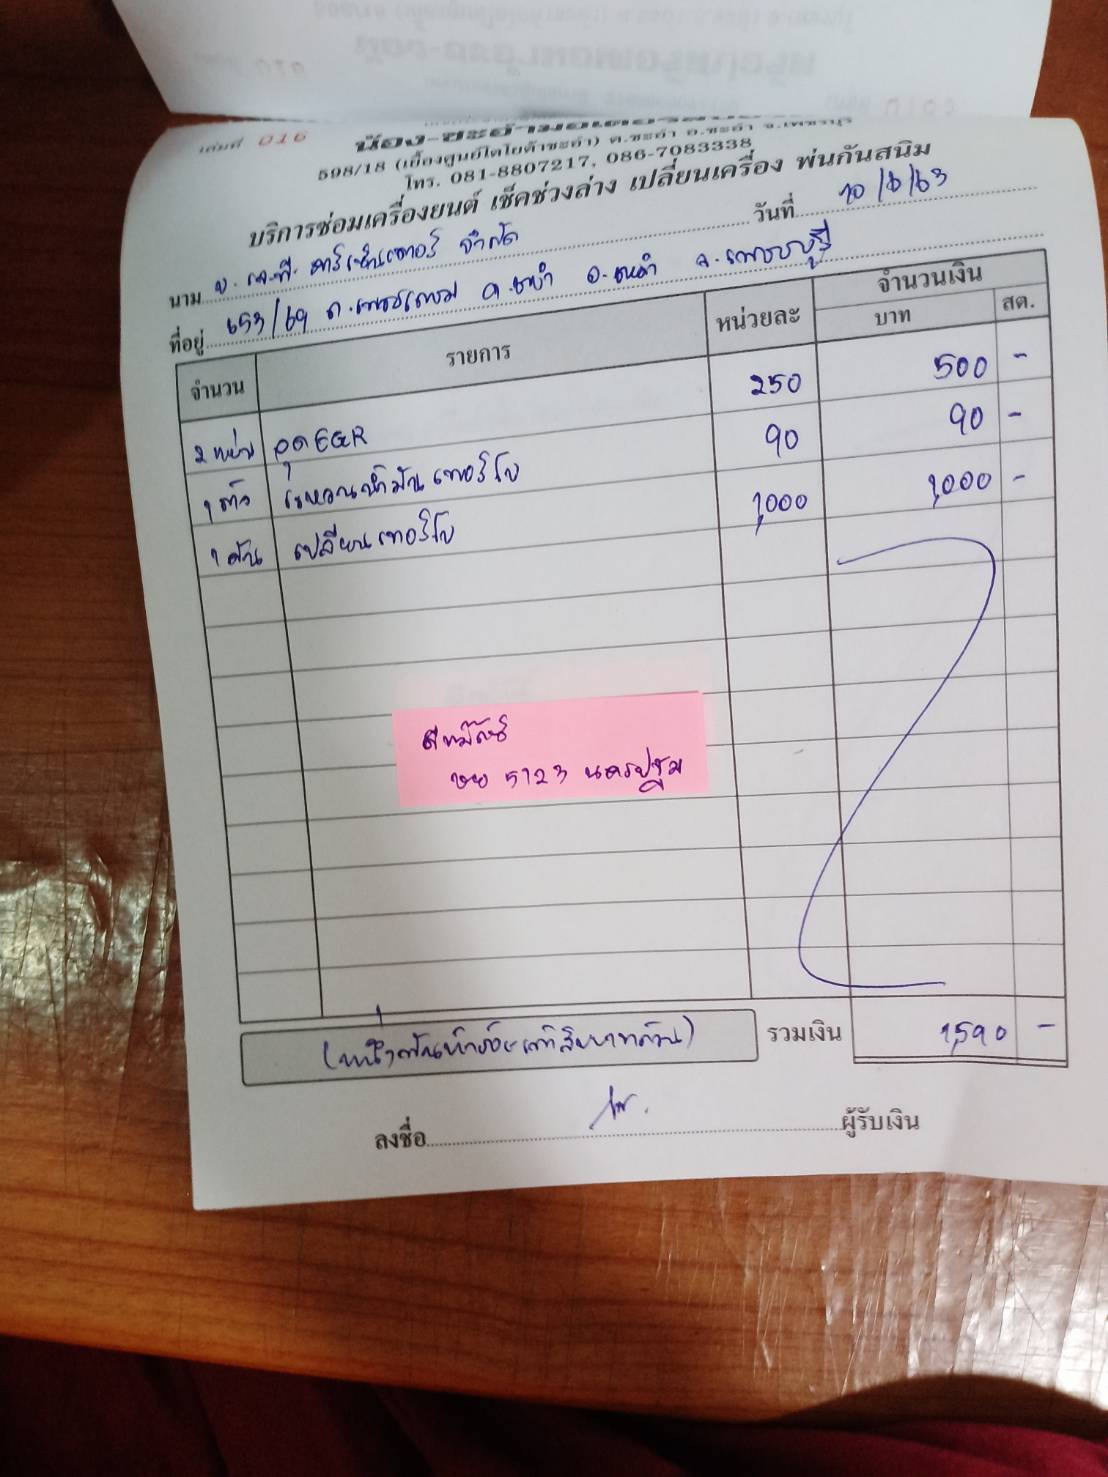 เล่มที่ 016
น้อง-ชะอำมอเตอร์
598/18 (เยื้องศูนย์โตโยต้าชะอำ) ต.ชะอำ อ.ชะอำ จ.เพชรบุรี
โทร. 081-8807217, 086-7083338
บริการซ่อมเครื่องยนต์ เช็คช่วงล่าง เปลี่ยนเครื่อง พ่นกันสนิม
วันที่ 10/6/63
นาม บ. เจ.พี. คาร์เซ็นเตอร์ จำกัด
ที่อยู่ 653/69 ถ.เพชรเกษม ต.ชะอำ อ.ชะอำ จ.เพชรบุรี
จำนวน รายการ หน่วยละ จำนวนเงิน
บาท สต.
2 แผ่น อุด EGR 250 500 -
1 ตัว แหวนน้ำมันเทอร์โบ 90 90 -
1 คัน เปลี่ยนเทอร์โบ 1,000 1,000 -
5123 นครปฐม
(หนึ่งพันห้าร้อยเก้าสิบบาทถ้วน) รวมเงิน 1,590 -
ลงชื่อ ผู้รับเงิน